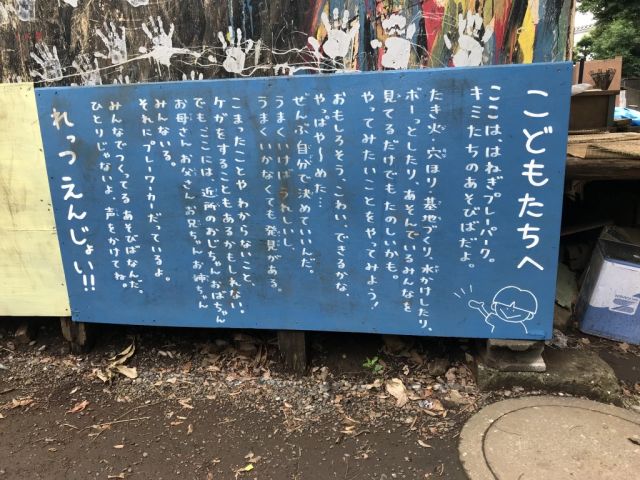 こどもたちへ
ここは はねぎプレーパーク。
キミたちのあそびばだよ。
たき火・穴ほり・基地づくり、水かけしたり、
ボーっとしたり、あそんでいるみんなを
見てるだけでもたのしいかも。
やってみたいことをやってみよう！
おもしろそう、こわい、できるかな、
やっぱや〜めた…
ぜんぶ自分で決めていいんだ。
うまくいけばうれしいし、
うまくいかなくても発見がある。
こまったことや わからないこと、
ケガをすることもあるかもしれない。
でも ここには、近所のおじちゃん おばちゃん
お母さん お父さん お兄ちゃん お姉ちゃん
みんないる。
それにプレーワーカーだっているよ。
みんなでつくってる あそびばなんだ。
ひとりじゃないよ 声をかけてね。
れっつ えんじょい!!